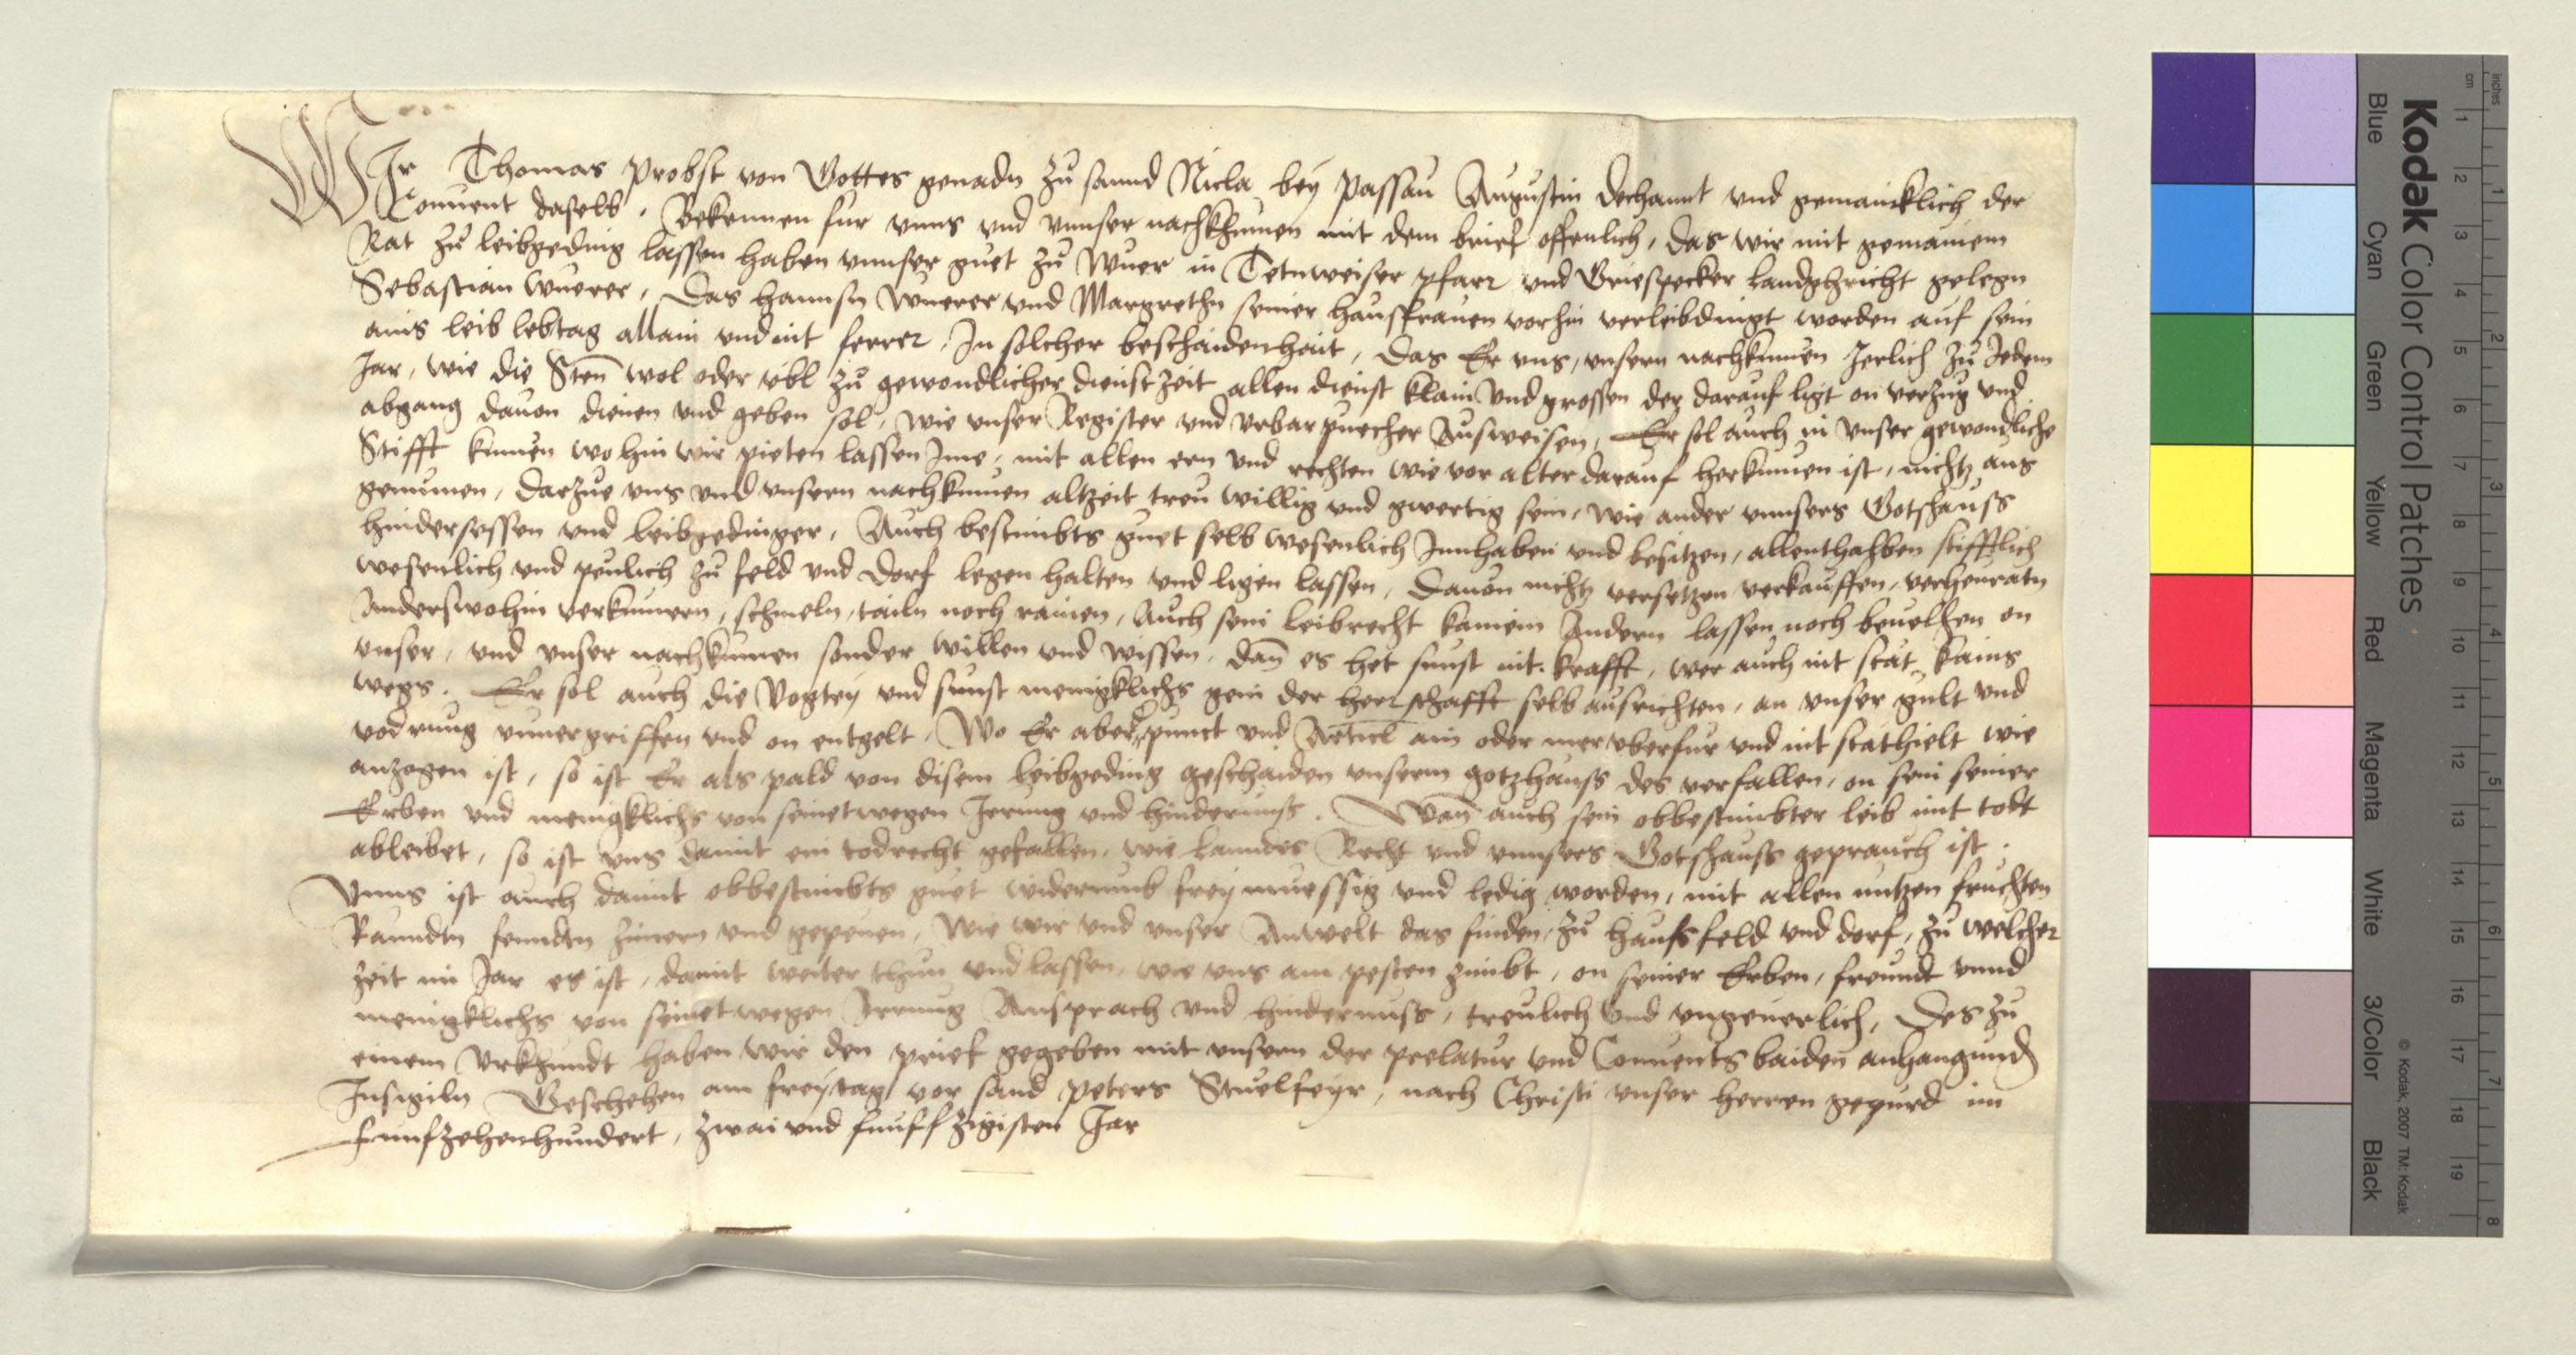 WIr Thomas Probst von Gottes genadn zu sannd Nicla bey Passau Augustin dechannt und gemaincklich der
Conuent daselb, Bekennen fur unns und unnser nachkhumen mit dem brief offenlich, das wir mit gemainem
Rat zu leibgeding lassen haben unnser guet zu Wuer in Tetnweiser pfarr und Griespecker landghricht gelegn
Sebastian Wuerer, Das hannsn Wuerer und Margrethn seiner hausfrauen vorhin verleibdingt worden auf sein
ains leib lebtag allain und nit ferrer, In solcher beschaidenhait, das Er uns, unsern nachkumen Jerlich zu Jedem
Jar, wie die Sten wol oder ubl zu gewondlicher dienst zeit allen dienst klain und grossen der darauf ligt on verzug und
abgang davon dienen und geben sol, wie unser Register und Urbarpuecher Ausweisen, Er sol auch in unser gewondliche
Stifft kumen wohin wir pieten lassen Ime, mit allen ern und rechten wie vor alter darauf herkumen ist, nichtz aus
genumen, darzue uns und unsern nachkumen altzeit treu willig und gwertig sein, wie ander unnsers Gotshauss
hindersessen und leibgedinger, Auch bestimbts guet selb wesenlich Innhaben und besitzen, allenthalben stifftlich
wesenlich und peulich zu feld und dorf legen halten und ligen lassen, Davon nichtz versetzen verkauffen, verheuratn
Anderswohin verkumern, schmeln, tailn noch rainen, Auch sein leibrecht kainem Andern lassen noch bevelhen on
unser, und unser nachkumen sonder willen und wissen, dan es het sunst nit krafft, wer auch nit stät kains
wegs. Er sol auch die Vogtey und sunst menigklichs gein der herrschafft selb ausrichten, an unser gult und
vodrung unvergriffen und on entgelt, Wo Er aber punct und Articl ain oder mer uberfur und nit stathielt wie
anzogen ist, so ist Er als pald von disem leibgeding geschaiden unserm gotzhauss des verfallen, on sein seiner
Erben und menigklichs von seinetwegen Jerung und hindernuss. Wan auch sein obbestimbter leib mit todt
ableibet, so ist uns damit ein todrecht gefallen, wie lanndes Recht und unnsers Gotshauss geprauch ist,
Unns ist auch damit obbestimbts guet widerumb frey muessig und ledig worden, mit allen nutzen fruchten
zimern und gepeuen, Wie wir und unser Anwelt das finden, zu hauss feld und dorf, zu welcher
zeit im Jar es ist, damit weiter thun und lassen, wie uns am pesten zimbt, on seiner Erben, freundt unnd
menigklichs von seinetwegen Irrung Ansprach und hindernuss, treulich und ungeverlich, Des zu
einem Urkhundt haben wir den prief gegeben mit unsern der prelatur und Convents baiden anhangund
Insigiln Geschehen am freytag vor sand peters Stuelfeyr, nach Christi unser herren gepurd im
funfzehenhundert, zwai und funffzigisten Jar
Kodak Color Control Patches
Blue Cyan Green Yellow Red Magenta White 3/Color Black
© Kodak, 2007 TM: Kodak
cm 1 2 3 4 5 6 7 8 9 10 11 12 13 14 15 16 17 18 19
inches 1 2 3 4 5 6 7 8